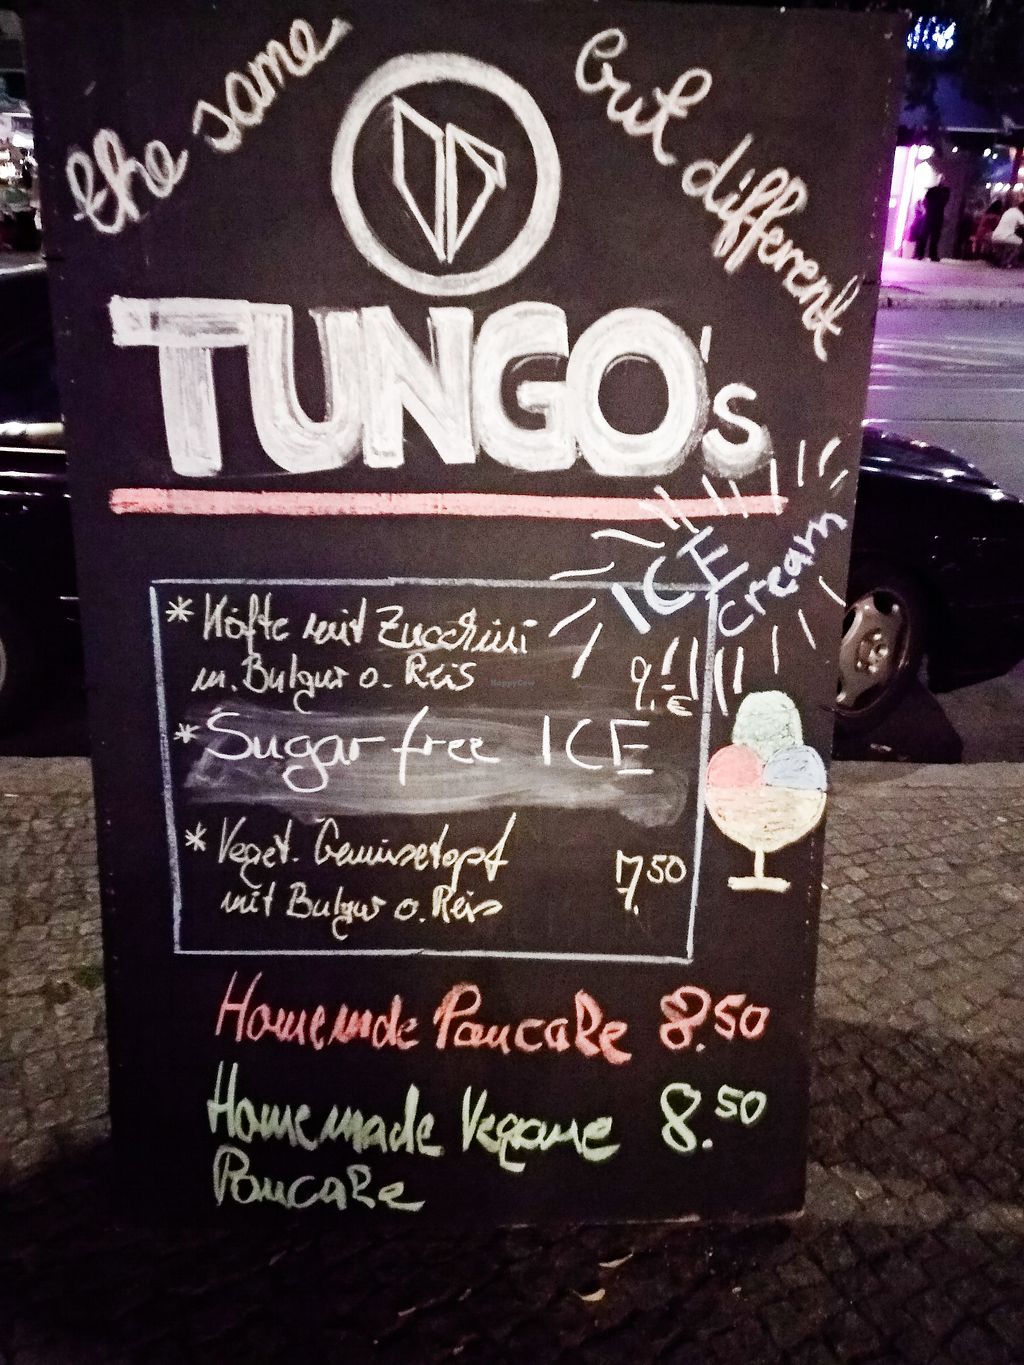 the same
but different
TUNGO's
ICE
cream
* Köfte mit Zucchini
m. Bulgur o. Reis 9,-€
* Sugar free ICE
* Veget. Gemüsetopf
mit Bulgur o. Reis 7.50
Homemade Pancake 8.50
Homemade Vegane 8.50
Pancake
HappyCow